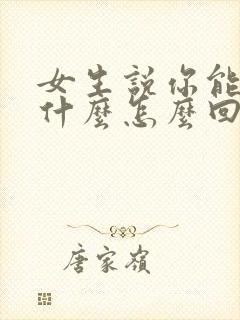 女生説你能
什麼怎麼回
唐家嶺